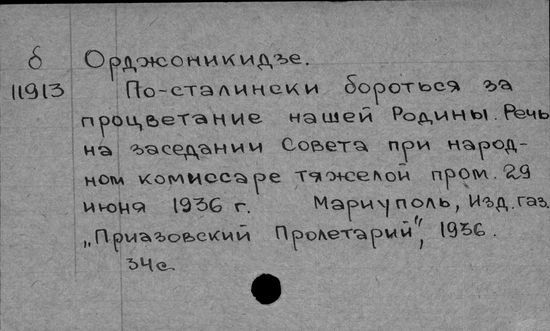 б Орджоникидзе.
11913 По-сталински бороться за
процветание нашей Родины. Речь
на заседании Совета при народ-
ном комиссаре тяжелой пром. 29
июня 1936 г. Мариуполь, Изд. газ.
„Приазовский Пролетарий", 1936.
34с.